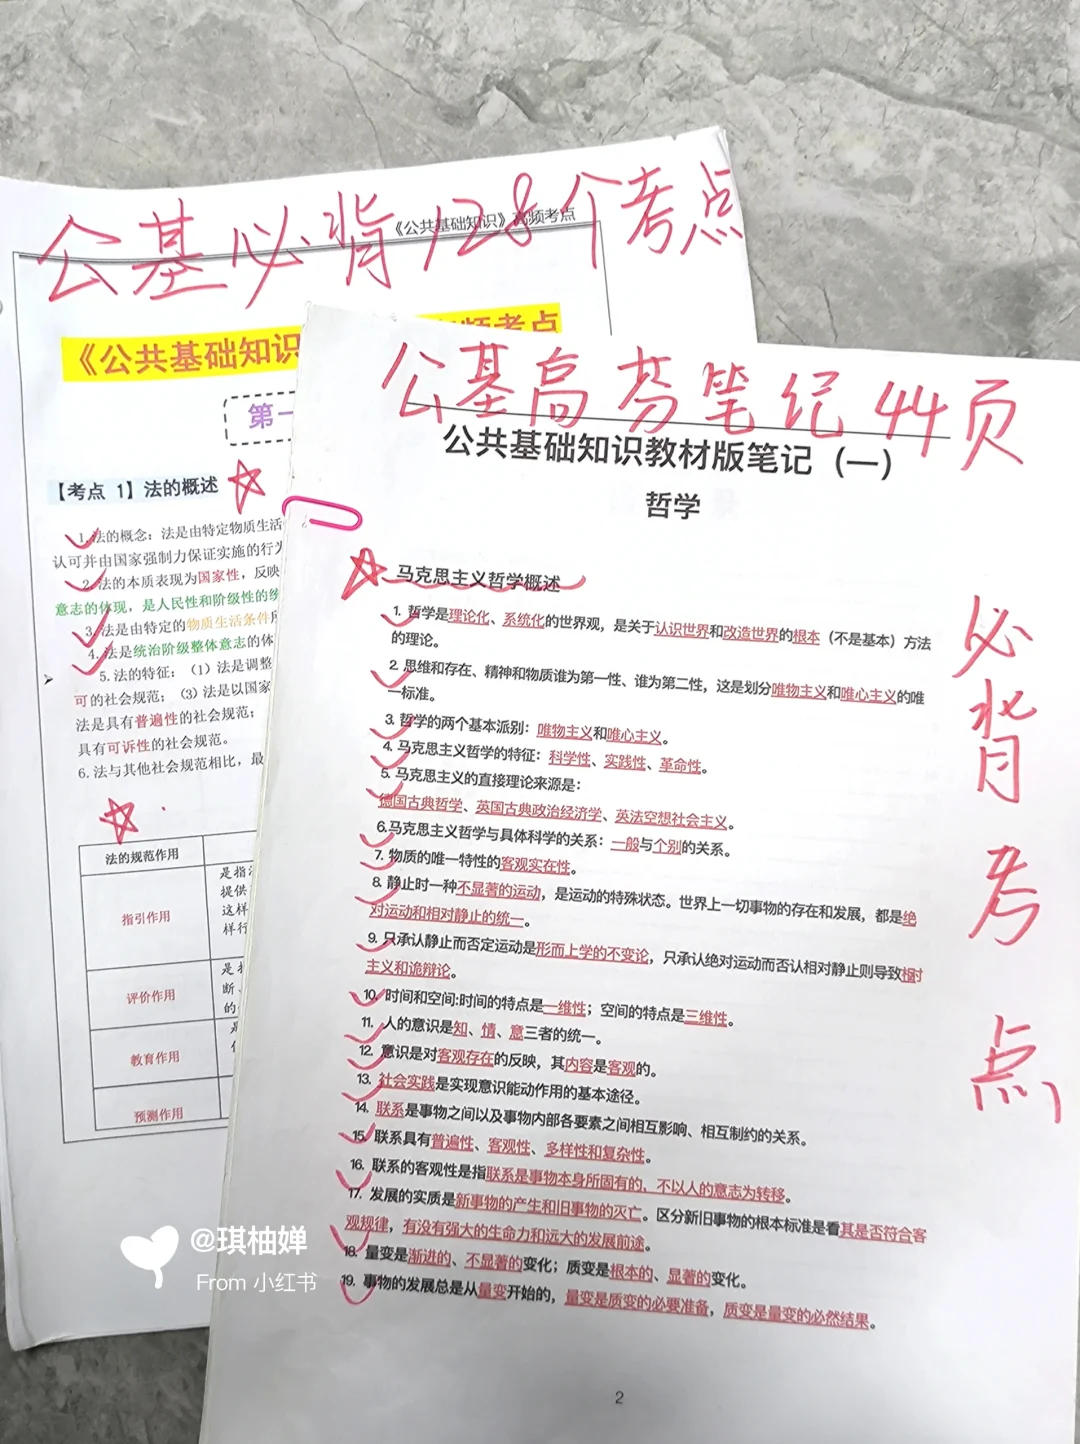 公基必背128个考点
《公共基础知识》高频考点
《公共基础知识
频考点
第一
【考点 1】法的概述
1.法的概念：法是由特定物质生活
认可并由国家强制力保证实施的行为
2.法的本质表现为国家性，反映
意志的体现，是人民性和阶级性的统
3.法是由特定的物质生活条件
4.法是统治阶级整体意志的体
5.法的特征：（1）法是调整
可的社会规范；（3）法是以国家
法是具有普遍性的社会规范；
具有可诉性的社会规范。
6.法与其他社会规范相比，最
法的规范作用
指引作用
是指
提供
这样
样行
评价作用
断、
的
教育作用
预测作用
公基高芬笔记44页
公共基础知识教材版笔记（一）
哲学
马克思主义哲学概述
1. 哲学是理论化、系统化的世界观，是关于认识世界和改造世界的根本（不是基本）方法
的理论。
2. 思维和存在、精神和物质谁为第一性、谁为第二性，这是划分唯物主义和唯心主义的唯
一标准。
3. 哲学的两个基本派别：唯物主义和唯心主义。
4. 马克思主义哲学的特征：科学性、实践性、革命性。
5. 马克思主义的直接理论来源是：
德国古典哲学、英国古典政治经济学、英法空想社会主义。
6.马克思主义哲学与具体科学的关系：一般与个别的关系。
7. 物质的唯一特性的客观实在性。
8. 静止时一种不显著的运动，是运动的特殊状态。世界上一切事物的存在和发展，都是绝
对运动和相对静止的统一。
9. 只承认静止而否定运动是形而上学的不变论，只承认绝对运动而否认相对静止则导致相对
主义和诡辩论。
10. 时间和空间:时间的特点是一维性；空间的特点是三维性。
11. 人的意识是知、情、意三者的统一。
12. 意识是对客观存在的反映，其内容是客观的。
13. 社会实践是实现意识能动作用的基本途径。
14. 联系是事物之间以及事物内部各要素之间相互影响、相互制约的关系。
15. 联系具有普遍性、客观性、多样性和复杂性。
16. 联系的客观性是指联系是事物本身所固有的，不以人的意志为转移。
17. 发展的实质是新事物的产生和旧事物的灭亡。区分新旧事物的根本标准是看其是否符合客
观规律，有没有强大的生命力和远大的发展前途。
18. 量变是渐进的、不显著的变化；质变是根本的、显著的变化。
19. 事物的发展总是从量变开始的，量变是质变的必要准备，质变是量变的必然结果。
2
必
背
考
点
@琪柚婵
From 小红书